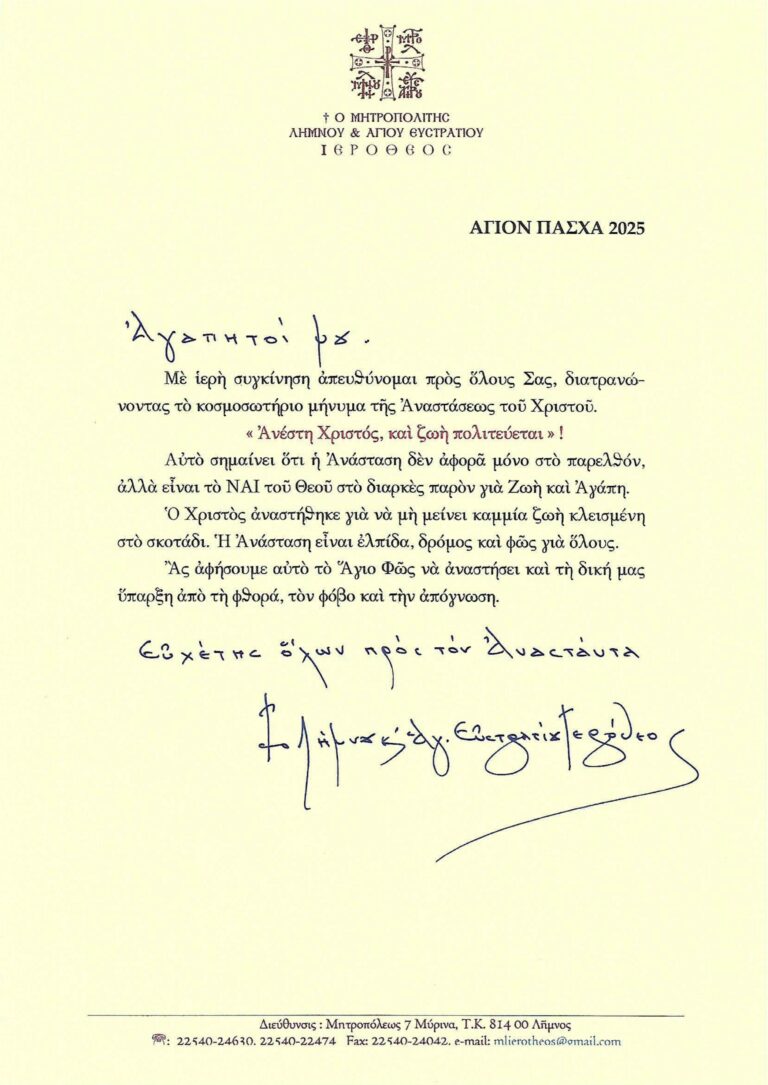 † Ο ΜΗΤΡΟΠΟΛΙΤΗΣ
ΛΗΜΝΟΥ & ΑΓΙΟΥ ΕΥΣΤΡΑΤΙΟΥ
ΙΕΡΟΘΕΟΣ
ΑΓΙΟΝ ΠΑΣΧΑ 2025
Ἀγαπητοί μου.
Μὲ ἱερὴ συγκίνηση ἀπευθύνομαι πρὸς ὅλους Σας, διατρανώ-
νοντας τὸ κοσμοσωτήριο μήνυμα τῆς Ἀναστάσεως τοῦ Χριστοῦ.
« Ἀνέστη Χριστός, καὶ ζωὴ πολιτεύεται » !
Αὐτὸ σημαίνει ὅτι ἡ Ἀνάσταση δὲν ἀφορᾶ μόνο στὸ παρελθόν,
ἀλλὰ εἶναι τὸ ΝΑΙ τοῦ Θεοῦ στὸ διαρκὲς παρὸν γιὰ Ζωὴ καὶ Ἀγάπη.
Ὁ Χριστὸς ἀναστήθηκε γιὰ νὰ μὴ μείνει καμμία ζωὴ κλεισμένη
στὸ σκοτάδι. Ἡ Ἀνάσταση εἶναι ἐλπίδα, δρόμος καὶ φῶς γιὰ ὅλους.
Ἂς ἀφήσουμε αὐτὸ τὸ Ἅγιο Φῶς νὰ ἀναστήσει καὶ τὴ δική μας
ὕπαρξη ἀπὸ τὴ φθορά, τὸν φόβο καὶ τὴν ἀπόγνωση.
Εὐχέτης ὅλων πρὸς τὸν Ἀναστάντα
† ὁ Λήμνου κ' Ἁγ. Εὐστρατίου Ἱερόθεος
Διεύθυνσις : Μητροπόλεως 7 Μύρινα, Τ.Κ. 814 00 Λῆμνος
☎: 22540-24630. 22540-22474 Fax: 22540-24042. e-mail: mlierotheos@gmail.com